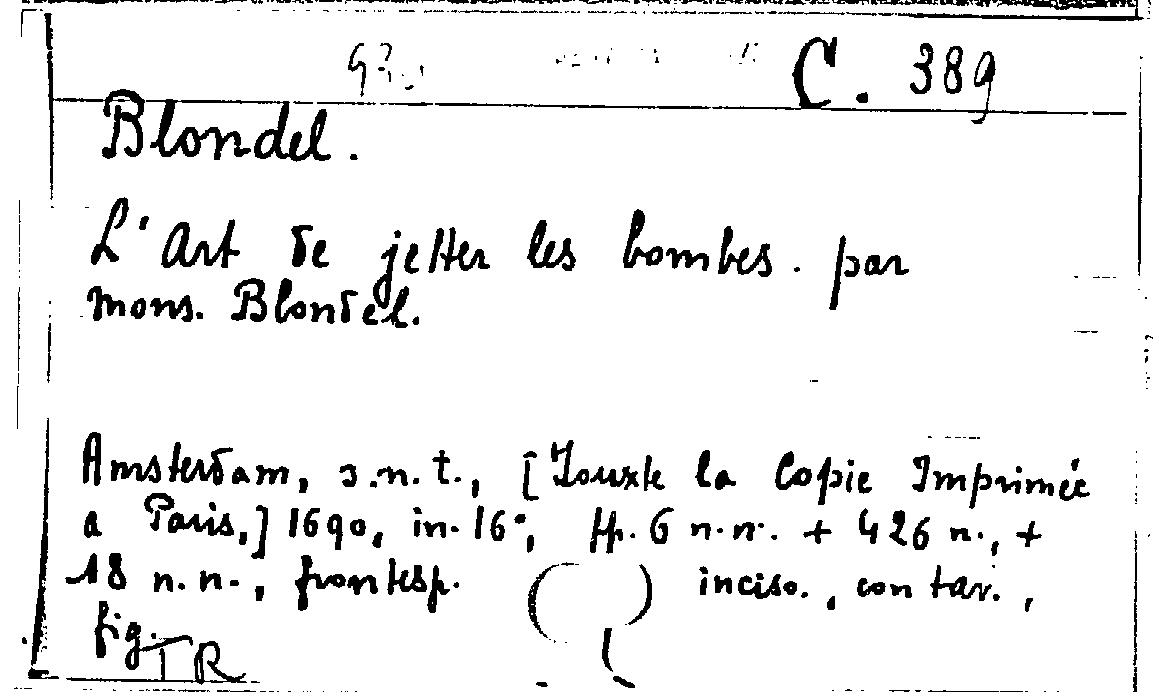 C. 389
Blondel.
L'Art de jetter les bombes. par
mons. Blondel.
Amsterdam, s.n.t., [Jouxte la Copie Imprimée
a Paris,] 1690, in-16°, pp. 6 n.n. + 426 n., +
18 n.n., frontesp. ( ) inciso., con tav.,
fig.
TR